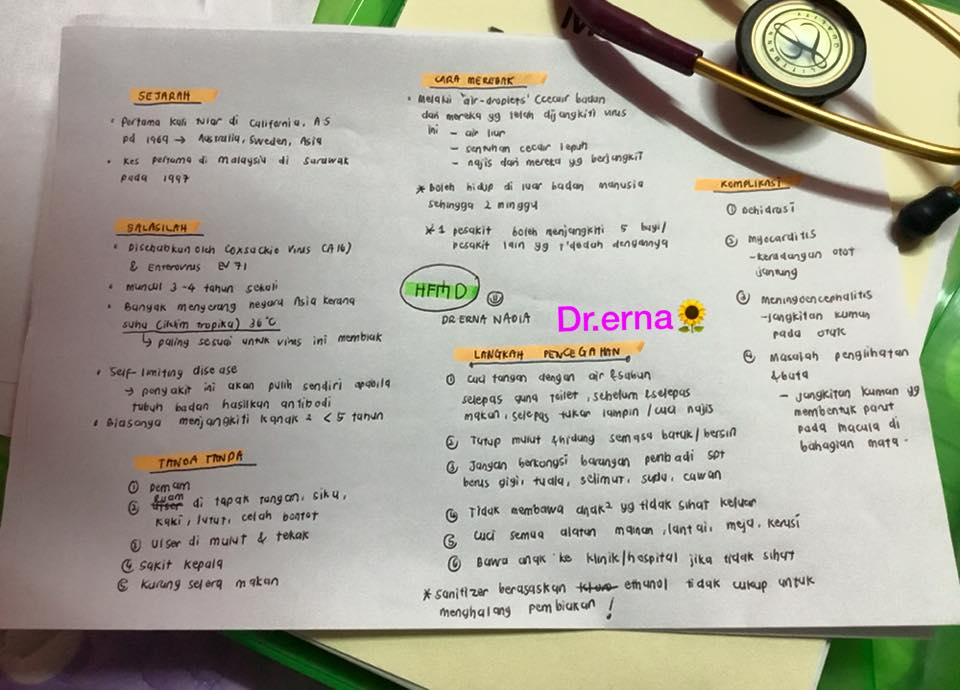 SEJARAH
• Pertama kali tular di California, AS
pd 1969 → Australia, Sweden, Asia
• Kes pertama di Malaysia di Sarawak
pada 1997
SALASILAH
• Disebabkan oleh Coxsackie Virus (A16)
& Enterovirus EV 71
• muncul 3-4 tahun sekali
• Banyak menyerang negara Asia kerana
suhu (iklim tropika) 36°C
↳ paling sesuai untuk virus ini membiak
• Self-limiting disease
→ penyakit ini akan pulih sendiri apabila
tubuh badan hasilkan antibodi
• Biasanya menjangkiti kanak² < 5 tahun
TANDA TANDA
① Demam
② Ruam di tapak tangan, siku,
kaki, lutut, celah bontot
③ Ulser di mulut & tekak
④ Sakit kepala
⑤ Kurang selera makan
CARA MEREBAK
• Melalui 'air-droplets' (cecair badan
dari mereka yg telah dijangkiti virus
ini - air liur
- sentuhan cecair lepuh
- najis dari mereka yg berjangkit
* Boleh hidup di luar badan manusia
sehingga 2 minggu
* 1 pesakit boleh menjangkiti 5 bayi/
pesakit lain yg t'dedah dengannya
HFMD
DR.ERNA NADIA
Dr.erna🌻
LANGKAH PENCEGAHAN
① Cuci tangan dengan air & sabun
selepas guna toilet, sebelum & selepas
makan, selepas tukar lampin / cuci najis
② Tutup mulut & hidung semasa batuk/bersin
③ Jangan berkongsi barangan peribadi spt
berus gigi, tuala, selimut, sudu, cawan
④ Tidak membawa anak² yg tidak sihat keluar
⑤ Cuci semua alatan mainan, lantai, meja, kerusi
⑥ Bawa anak ke klinik/hospital jika tidak sihat
* Sanitizer berasaskan ethanol tidak cukup untuk
menghalang pembiakan !
KOMPLIKASI
① Dehidrasi
② Myocarditis
- keradangan otot
jantung
③ Meningoencephalitis
- jangkitan kuman
pada otak
④ Masalah penglihatan
& buta
- jangkitan kuman yg
membentuk parut
pada macula di
bahagian mata.
LITTMANN
QUALITY